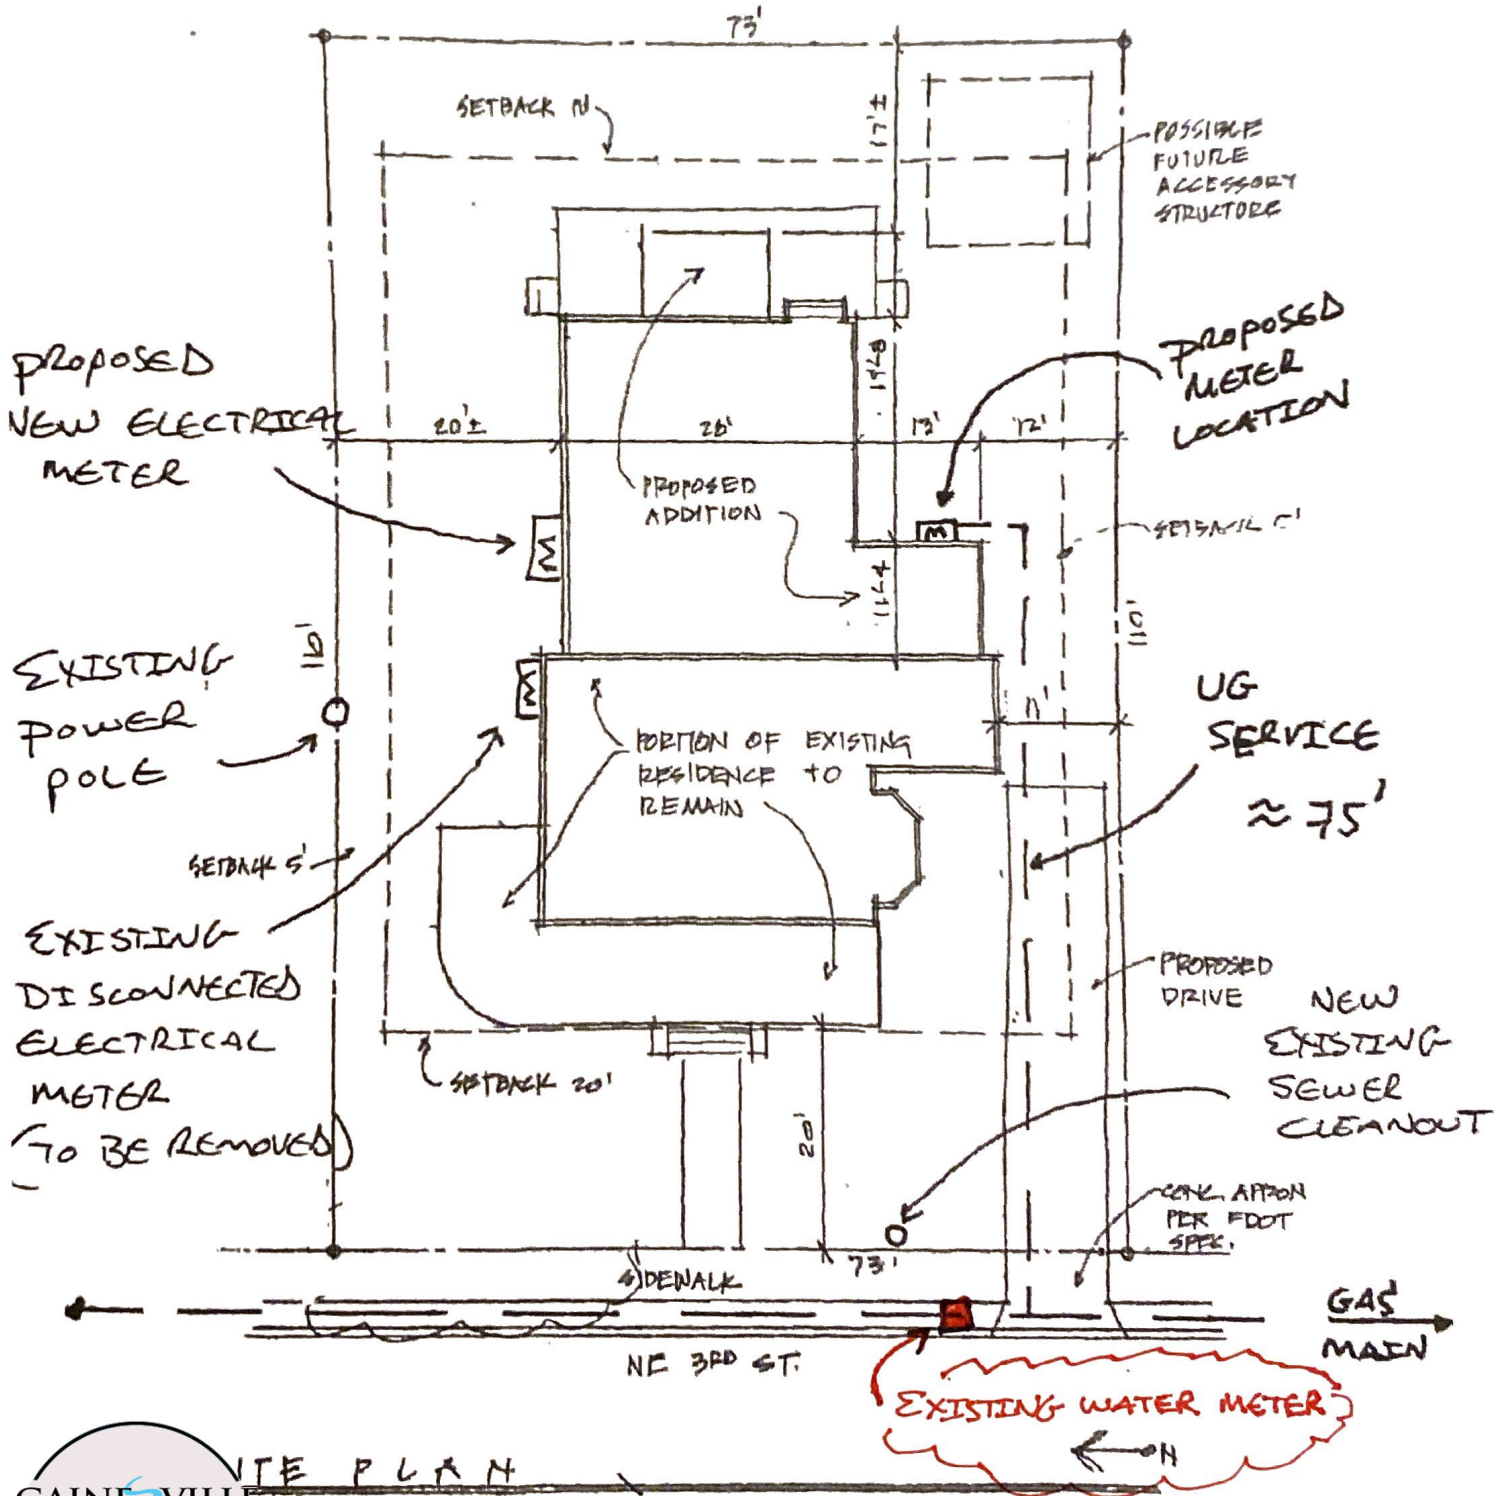 73'
SETBACK N
17'±
POSSIBLE
FUTURE
ACCESSORY
STRUCTURE
PROPOSED
NEW ELECTRICAL
METER
PROPOSED
METER
LOCATION
20'±
13'
12'
PROPOSED
ADDITION
M
M
M
110'
110'
EXISTING
POWER
POLE
UG
SERVICE
≈ 75'
11'
PORTION OF EXISTING
RESIDENCE TO
REMAIN
SETBACK 5'
EXISTING
DISCONNECTED
ELECTRICAL
METER
(TO BE REMOVED)
SETBACK 20'
20'
PROPOSED
DRIVE
NEW
EXISTING
SEWER
CLEANOUT
CONC. APRON
PER FDOT
SPEC.
73'
SIDEWALK
GAS
MAIN
NE 3RD ST.
EXISTING WATER METER
N
ITE PLAN